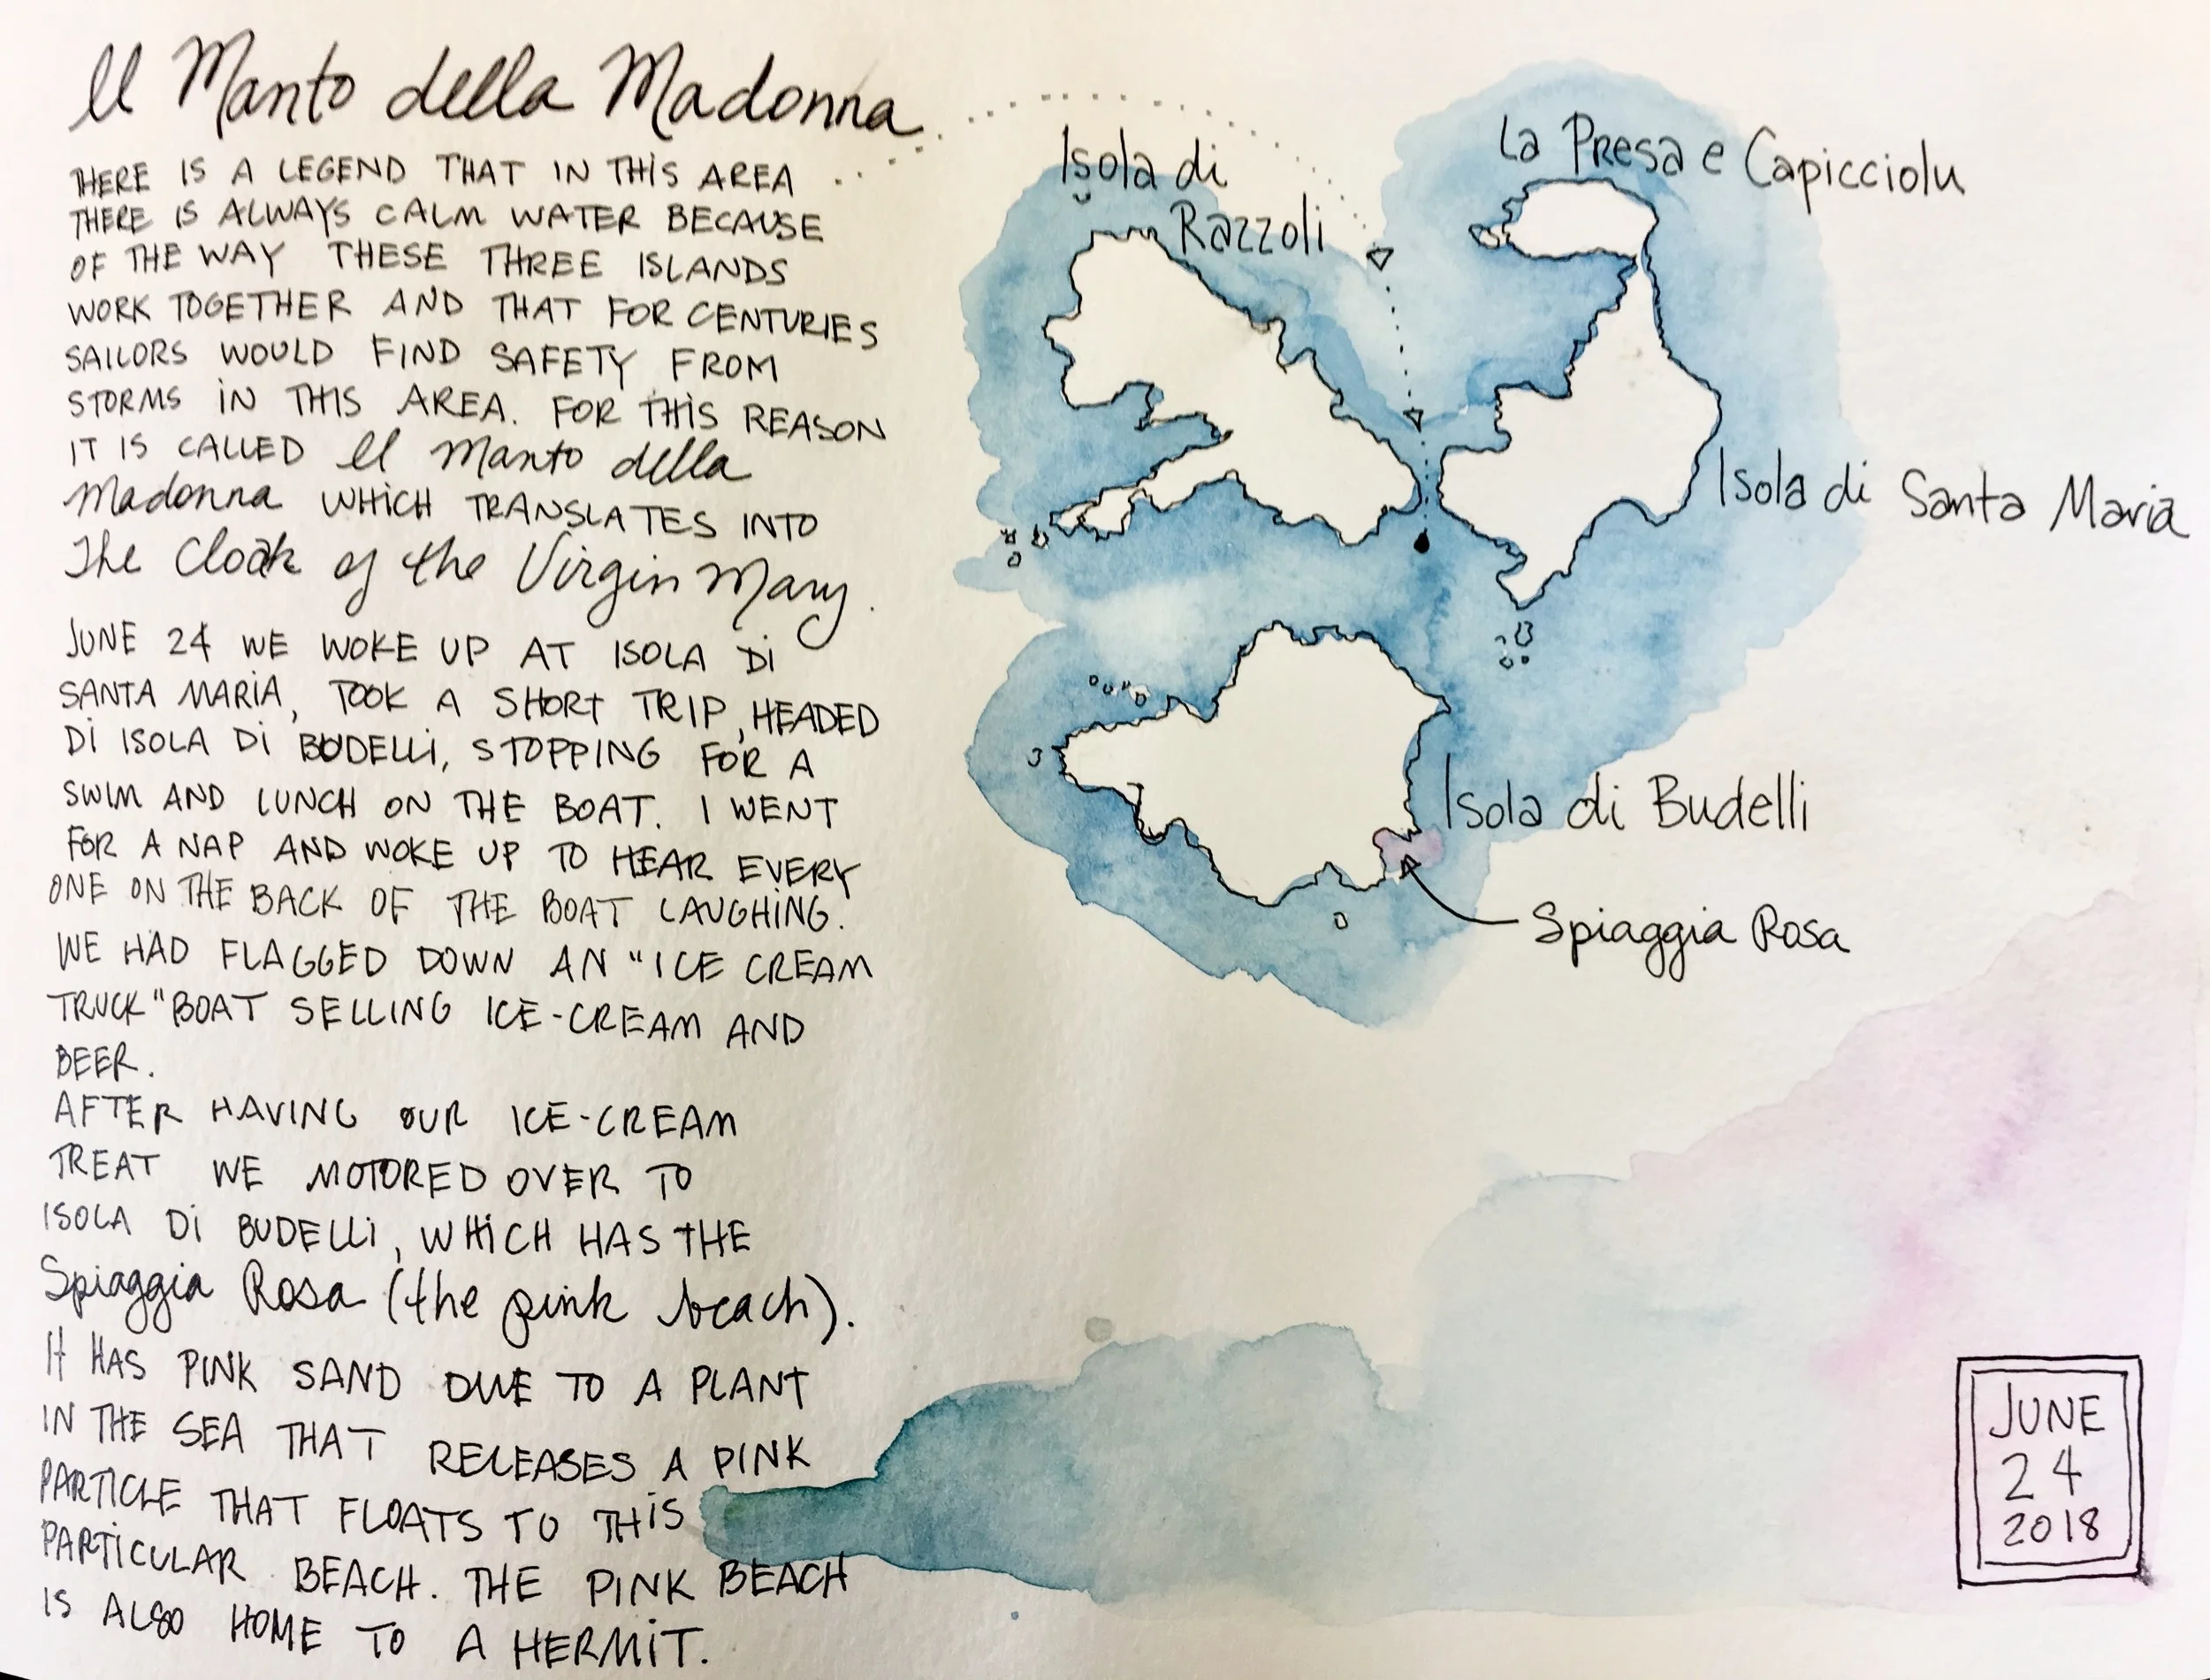 Il Manto della Madonna
THERE IS A LEGEND THAT IN THIS AREA
THERE IS ALWAYS CALM WATER BECAUSE
OF THE WAY THESE THREE ISLANDS
WORK TOGETHER AND THAT FOR CENTURIES
SAILORS WOULD FIND SAFETY FROM
STORMS IN THIS AREA. FOR THIS REASON
IT IS CALLED Il Manto della
Madonna WHICH TRANSLATES INTO
The Cloak of the Virgin Mary.
JUNE 24 WE WOKE UP AT ISOLA DI
SANTA MARIA, TOOK A SHORT TRIP, HEADED
DI ISOLA DI BUDELLI, STOPPING FOR A
SWIM AND LUNCH ON THE BOAT. I WENT
FOR A NAP AND WOKE UP TO HEAR EVERY
ONE ON THE BACK OF THE BOAT LAUGHING.
WE HAD FLAGGED DOWN AN "ICE CREAM
TRUCK" BOAT SELLING ICE-CREAM AND
BEER.
AFTER HAVING OUR ICE-CREAM
TREAT WE MOTORED OVER TO
ISOLA DI BUDELLI, WHICH HAS THE
Spiaggia Rosa (the pink beach).
It HAS PINK SAND DUE TO A PLANT
IN THE SEA THAT RELEASES A PINK
PARTICLE THAT FLOATS TO THIS
PARTICULAR BEACH. THE PINK BEACH
IS ALSO HOME TO A HERMIT.
Isola di
Razzoli
La Presa e Capicciolu
Isola di Santa Maria
Isola di Budelli
Spiaggia Rosa
JUNE
24
2018